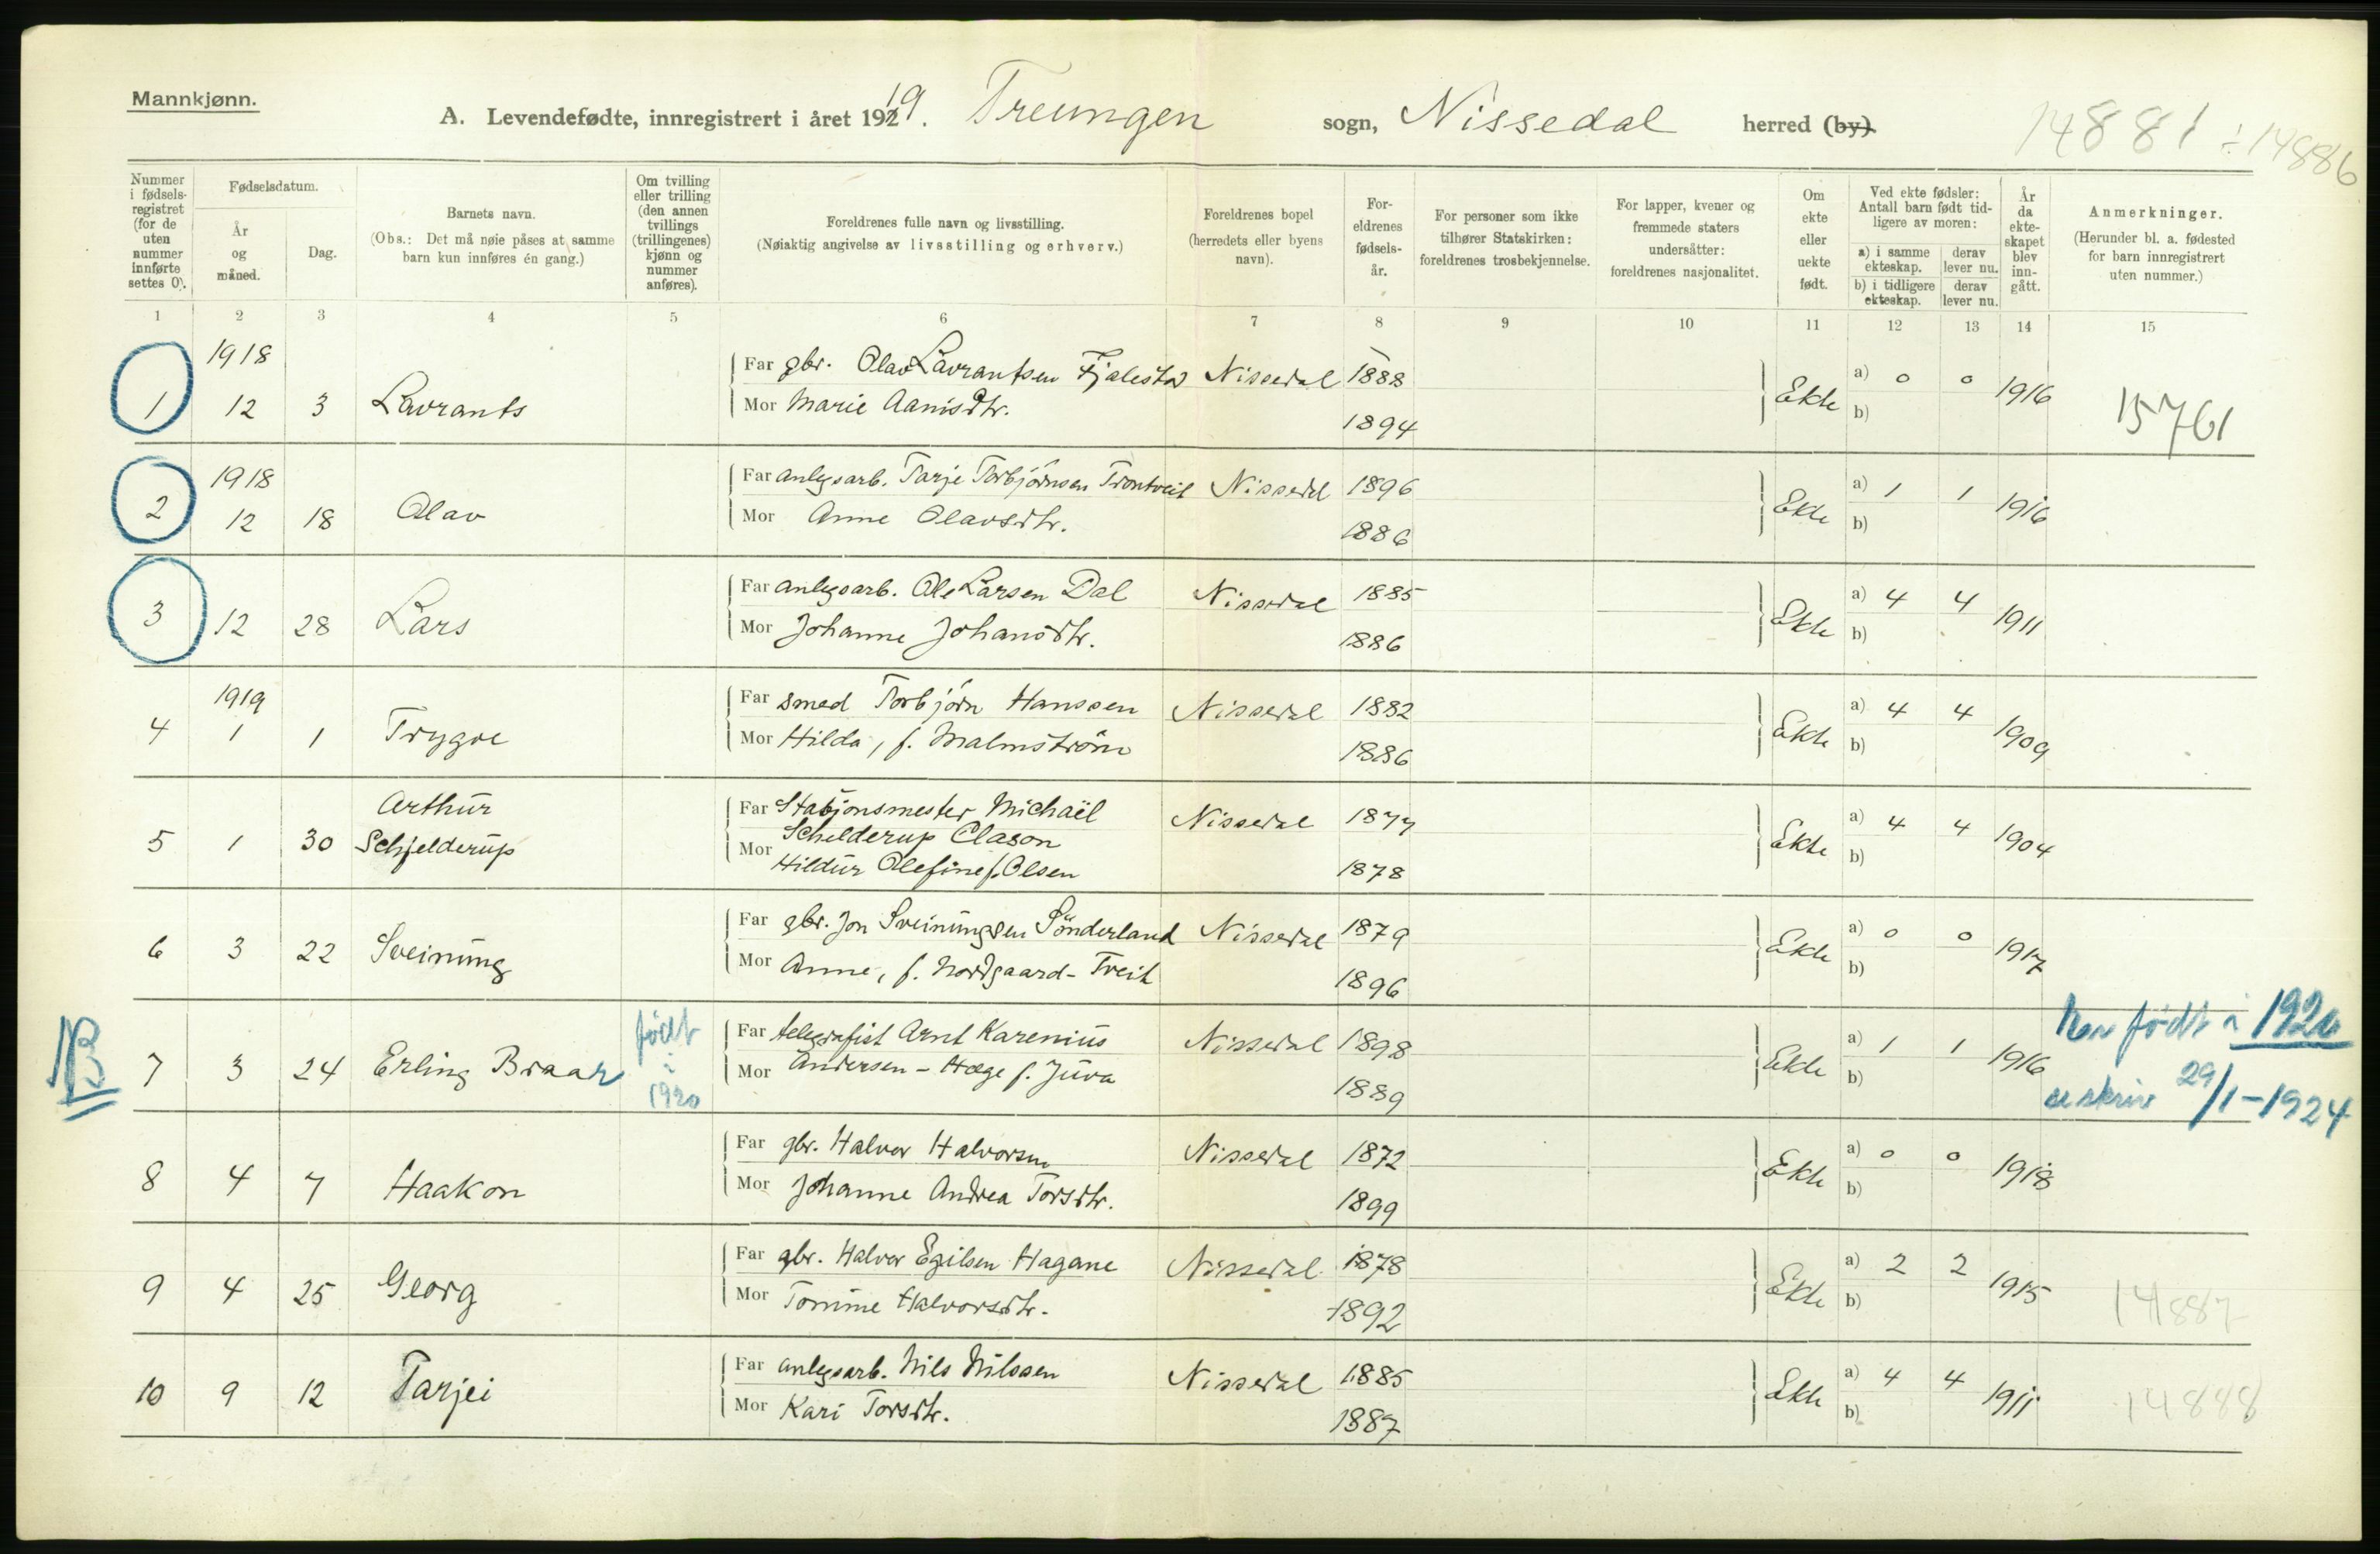 Mannkjønn.
A. Levendefødte, innregistrert i året 1919. Treungen sogn, Nissedal herred (by).
14881 ÷ 14886
Nummer i fødsels-registret (for de uten nummer innførte settes 0).
Fødselsdatum.
År og måned.
Dag.
Barnets navn.
(Obs.: Det må nøie påses at samme barn kun innføres én gang.)
Om tvilling eller trilling (den annen tvillings (trillingenes) kjønn og nummer anføres).
Foreldrenes fulle navn og livsstilling.
(Nøiaktig angivelse av livsstilling og erhverv.)
Foreldrenes bopel (herredets eller byens navn).
For-eldrenes fødsels-år.
For personer som ikke tilhører Statskirken: foreldrenes trosbekjennelse.
For lapper, kvener og fremmede staters undersåtter: foreldrenes nasjonalitet.
Om ekte eller uekte født.
Ved ekte fødsler: Antall barn født tid-ligere av moren:
a) i samme ekteskap. derav lever nu.
b) i tidligere ekteskap. derav lever nu.
År da ekte-skapet blev inn-gått.
Anmerkninger.
(Herunder bl. a. fødested for barn innregistrert uten nummer.)
1 2 3 4 5 6 7 8 9 10 11 12 13 14 15
1918
Far gbr. Olav Lavrantsen Fjalestad Nissedal 1888
1 12 3 Lavrants Ekte a) 0 0 1916
Mor Marie Aanisdtr. 1894 b)
15761
1918
Far anlegsarb. Tarje Torbjørnsen Trontveit Nissedal 1896
2 12 18 Olav Ekte a) 1 1 1916
Mor Anne Olavsdtr. 1886 b)
Far anlegsarb. Ole Larsen Dal Nissedal 1885
3 12 28 Lars Ekte a) 4 4 1911
Mor Johanne Johansdtr. 1886 b)
1919
Far smed Torbjörn Hanssen Nissedal 1882
4 1 1 Trygve Ekte a) 4 4 1909
Mor Hilda, f. Malmström 1886 b)
Arthur
Far Stasjonsmester Michaël Nissedal 1877
5 1 30 Schjelderup Ekte a) 4 4 1904
Schelderup Clason
Mor Hildur Olefine f. Olsen 1878 b)
Far gbr. Jon Sveinungsen Sönderland Nissedal 1879
6 3 22 Sveinung Ekte a) 0 0 1917
Mor Anne, f. Nordgaard-Tveit 1896 b)
NB
født i 1920
Far telegrafist Arnt Karenius Nissedal 1898
7 3 24 Erling Braar Ekte a) 1 1 1916
Mor Andersen - Hæge f. Juva 1889 b)
født i 1920
se skriv 29/1-1924
Far gbr. Halvor Halvorsen Nissedal 1872
8 4 7 Haakon Ekte a) 0 0 1918
Mor Johanne Andrea Torsdtr. 1899 b)
Far gbr. Halvor Egilsen Hagane Nissedal 1878
9 4 25 Georg Ekte a) 2 2 1915
Mor Tomine Halvorsdtr. 1892 b)
14887
Far anlegsarb. Nils Nilssen Nissedal 1885
10 9 12 Tarjei Ekte a) 4 4 1911
Mor Kari Torsdtr. 1887 b)
14888